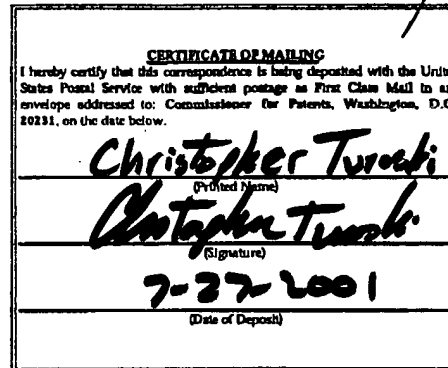 CERTIFICATE OF MAILING
I hereby certify that this correspondence is being deposited with the Unite
States Postal Service with sufficient postage as First Class Mail in an
envelope addressed to: Commissioner for Patents, Washington, D.C
20231, on the date below.
Christopher Turoski
(Printed Name)
Christopher Turoski
(Signature)
7-27-2001
(Date of Deposit)